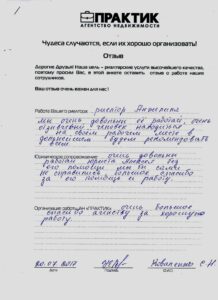 ПРАКТИК
АГЕНТСТВО НЕДВИЖИМОСТИ
Чудеса случаются, если их хорошо организовать!
Отзыв
Дорогие Друзья! Наша цель - риэлторские услуги высочайшего качества,
поэтому просим Вас, в этой анкете оставить отзыв о работе наших
сотрудников.
Ваш отзыв очень важен для нас!
Работа Вашего риелтора: риелтор
мы очень довольны её работой, очень
человек находится
на своём рабочем месте в
дальнейшем будем рекомендовать
всем
Юридическое сопровождение: очень довольны
работой юриста
его помощи мы бы сами
не справились большое спасибо
за его помощь и работу.
Организация работы АН «ПРАКТИК»: очень большое
спасибо агенству за хорошую
работу.
20.07.2017
дата подпись Ф.И.О.